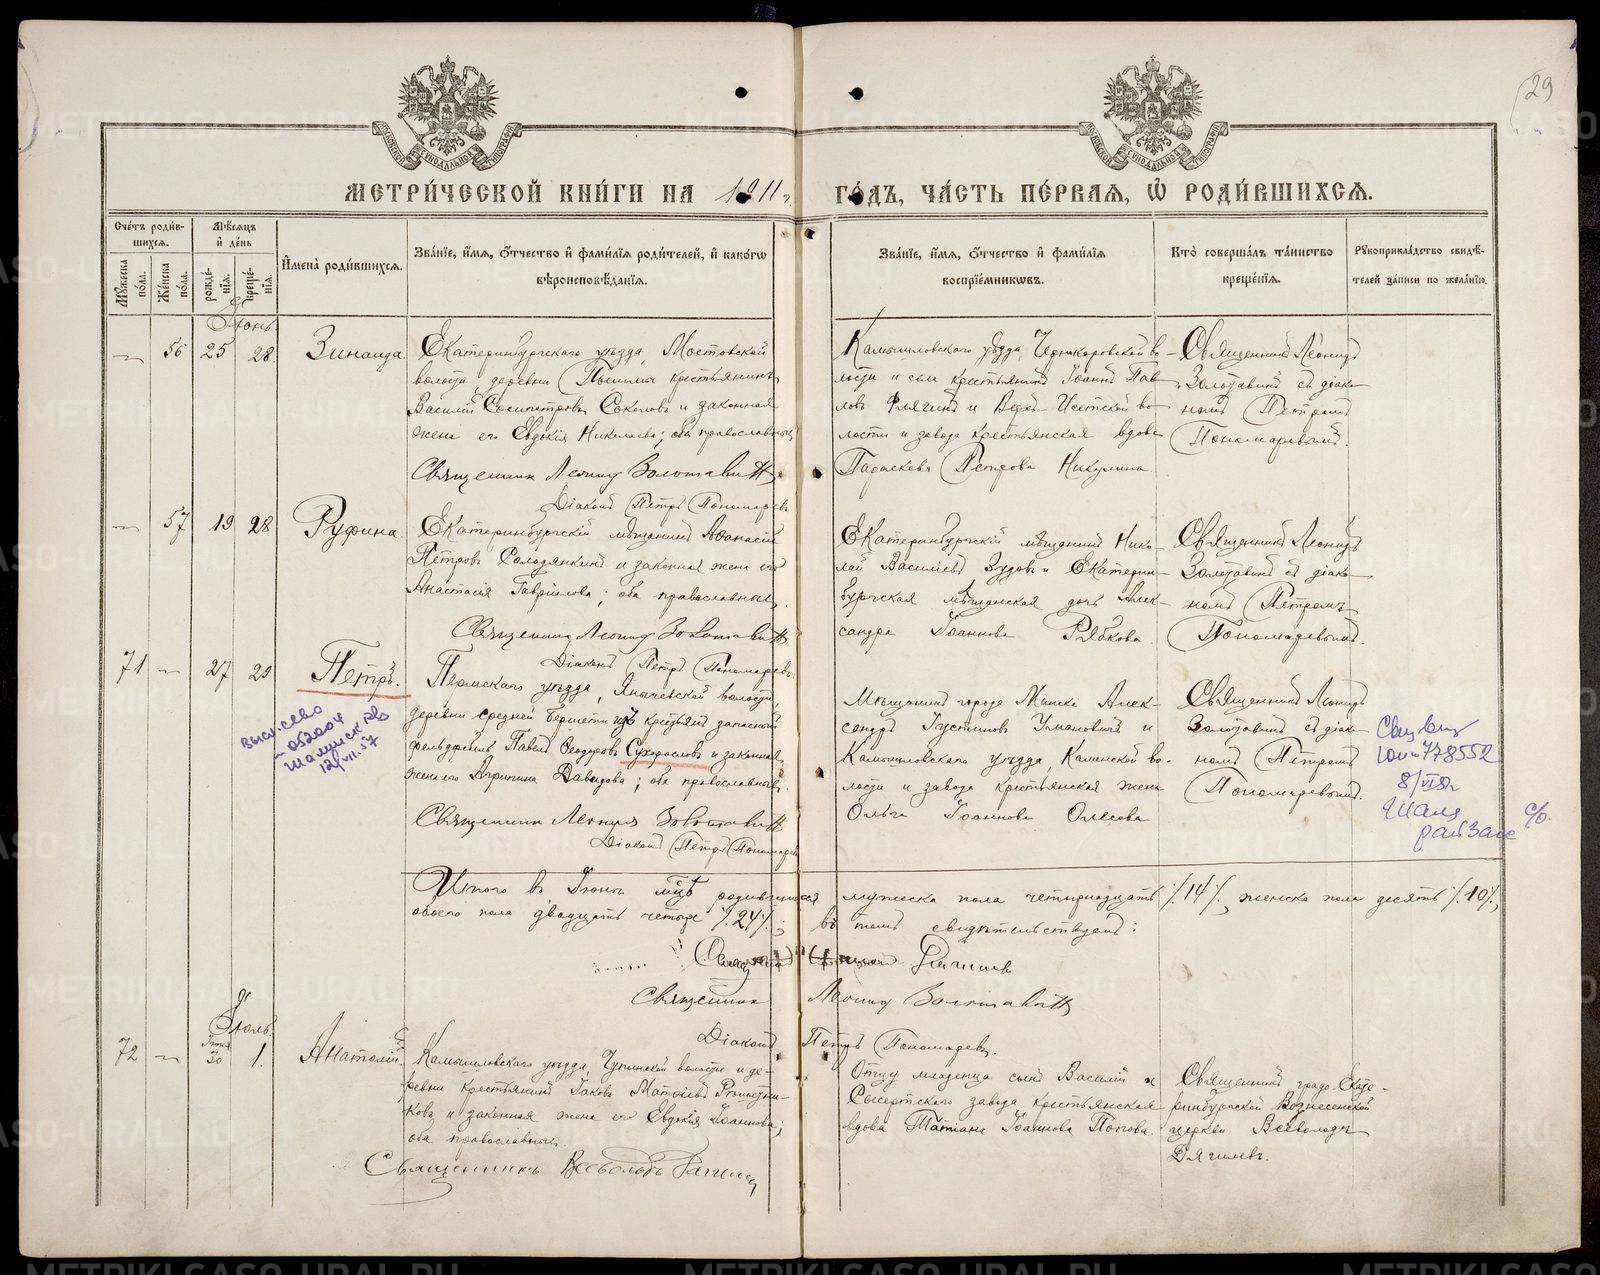 29
МЕТРИ́ЧЕСКОЙ КНИ́ГИ НА 1911 г. ГО́ДЪ, ЧА́СТЬ ПЕ́РВАЯ, Ѡ҆ РОДИ́ВШИХСЯ.
Сче́тъ роди́вшихся.
Мꙋ́жеска по́ла.
Же́нска по́ла.
Мѣ́сяцъ и҆ де́нь
рожде́нїя.
креще́нїя.
И҆мена̀ роди́вшихся.
Зва́нїе, и҆́мя, ѻ҆́тчество и҆ фами́лїя роди́телей, и҆ како́гѡ
вѣроисповѣ́данїя.
Зва́нїе, и҆́мя, ѻ҆́тчество и҆ фами́лїя
воспрїе́мникѡвъ.
Кто̀ соверша́лъ та́инство
креще́нїя.
Рꙋкоприкла́дство свидѣ́-
телей за́писи по жела́нїю.
Іюнь
56 25 28 Зинаида
Екатеринбургскаго уѣзда, Мостовской
волости, деревни Пышмы крестьянинъ
Василій Сосипатровъ Соколовъ и законная
жена его Евдокія Николаева; оба православные
Священникъ Леонидъ Золотавинъ
Діаконъ Петръ Пономаревъ
Камышловскаго уѣзда, во-
лости и села крестьянинъ Іоаннъ Пав-
ловъ и Верхъ-Исетской во-
лости и завода крестьянская вдова
Параскева Петрова Никулина
Священникъ Леонидъ
Золотавинъ съ діако-
номъ Петромъ
Пономаревымъ.
57 19 28 Руфина
Екатеринбургскій мѣщанинъ Аѳанасій
Петровъ Солодянкинъ и законная жена его
Анастасія Гавріилова; оба православные.
Священникъ Леонидъ Золотавинъ
Діаконъ Петръ Пономаревъ.
Екатеринбургскій мѣщанинъ Нико-
лай Василіевъ Зудовъ и Екатерин-
бургская мѣщанская дочь Алек-
сандра Іоаннова Рябкова.
Священникъ Леонидъ
Золотавинъ съ діако-
номъ Петромъ
Пономаревымъ.
71 27 29 Петръ.
Пермскаго уѣзда, Янычевской волости,
деревни средней изъ крестьянъ запасный
фельдфебель Павелъ Ѳеодоровъ Сухорословъ и законная
жена его Агриппина Давидова; оба православные.
Священникъ Леонидъ Золотавинъ
Діаконъ Петръ Пономаревъ
Мѣщанинъ города Минска Алек-
сандръ Іустиновъ Умановичъ и
Камышловскаго уѣзда Каменской во-
лости и завода крестьянская жена
Ольга Іоаннова
Священникъ Леонидъ
Золотавинъ съ діако-
номъ Петромъ
Пономаревымъ.
12/VII.57
778552
Шаля
Итого въ Іюнѣ мцѣ родившихся мужеска пола четырнадцать /14/, женска пола десять /10/,
обоего пола двадцать четыре /24/; въ томъ свидѣтельствуемъ:
Священникъ Леонидъ Золотавинъ
Діаконъ Петръ Пономаревъ.
Іюль
72 Іюня 30 1. Анатолій.
Камышловскаго уѣзда, волости и де-
ревни крестьянинъ Іаковъ Матѳіевъ Решетни-
ковъ и законная жена его Евдокія Іоаннова;
оба православные.
Священникъ Всеволодъ
Отцу младенца сынъ Василій и
Сысертскаго завода крестьянская
вдова Татіана Іоаннова Попова.
Священникъ градо-Екате-
ринбургской Вознесенской
церкви Всеволодъ
Дягилевъ.
METRIKI.GASO-URAL.RU